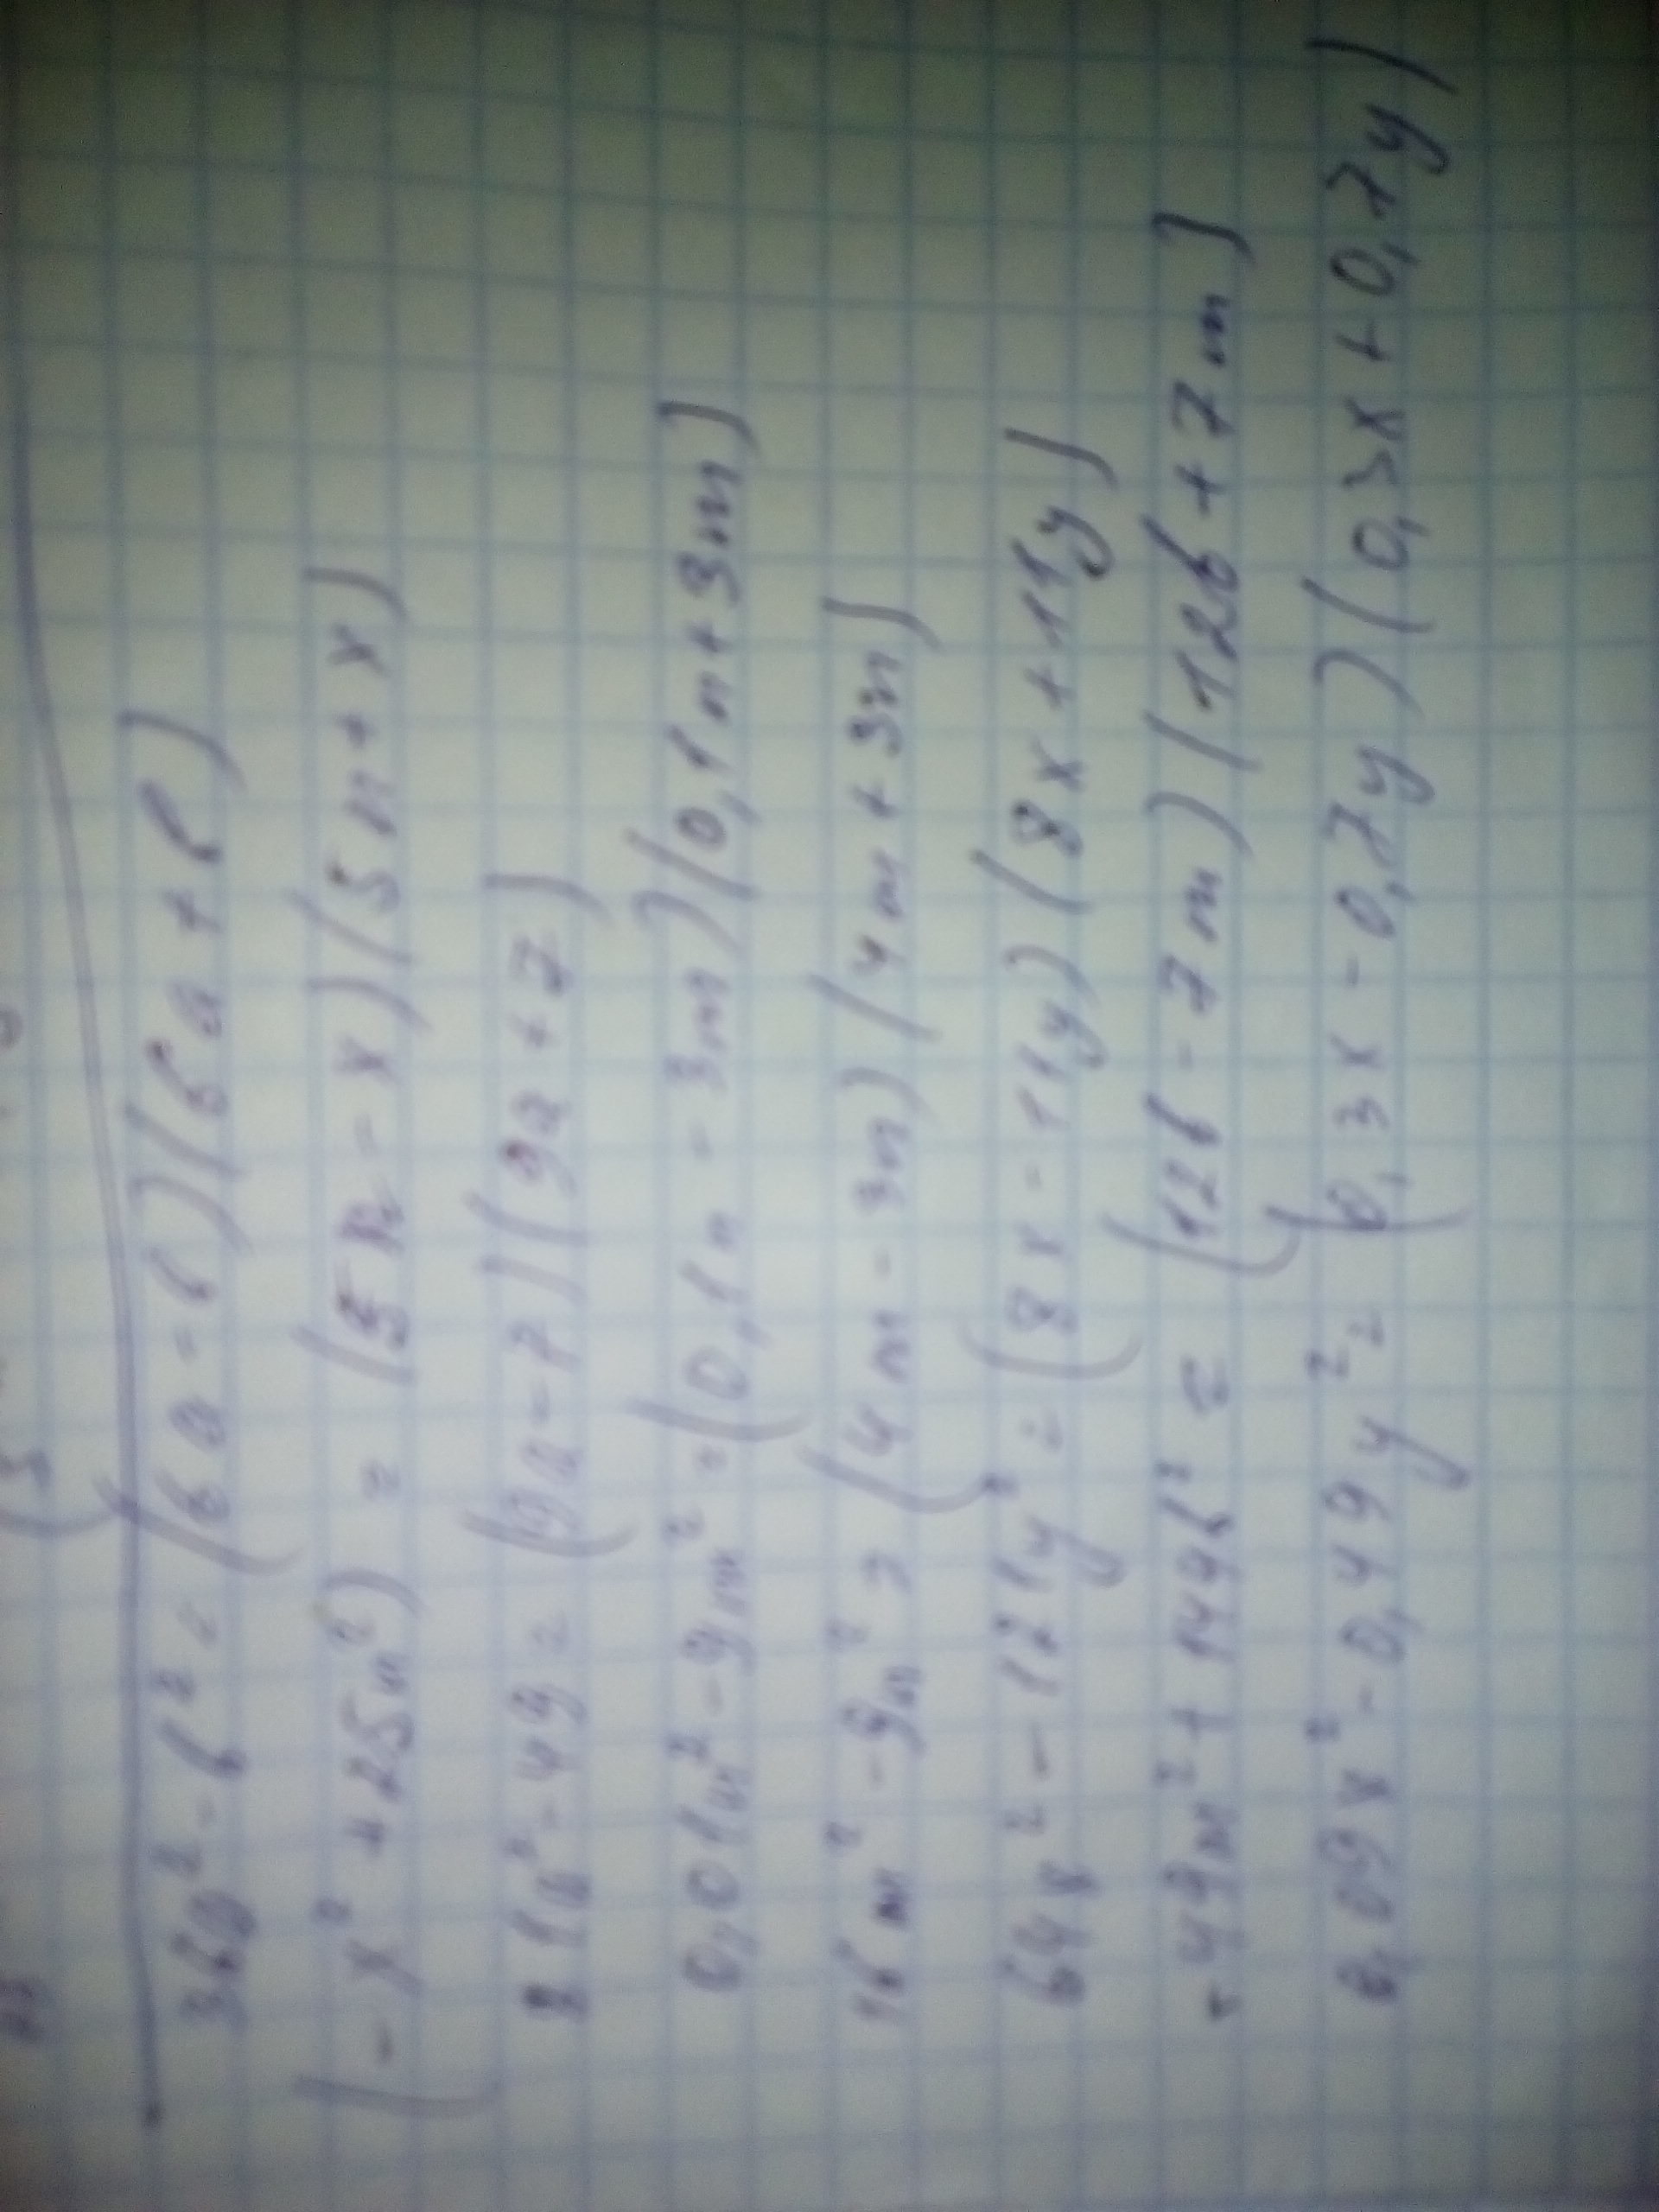 36a² - b² = (6a - b)(6a + b)
(- x² + 25n²) = (5n - x)(5n + x)
81a² - 49 = (9a - 7)(9a + 7)
0,01n² - 9m² = (0,1n - 3m)(0,1n + 3m)
16m² - 9n² = (4m - 3n)(4m + 3n)
64x² - 121y² = (8x - 11y)(8x + 11y)
- 49m² + 144b² = (12b - 7m)(12b + 7m)
0,09x² - 0,49y² = (0,3x - 0,7y)(0,3x + 0,7y)